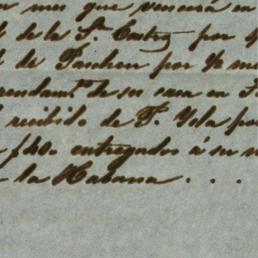 mes que vencerá en
de la Sra. Castro por
de Paichen por ½ me
arrendamto. de su casa en
recibido de F. Ysla po
$40. entregados á su
la Habana . . .